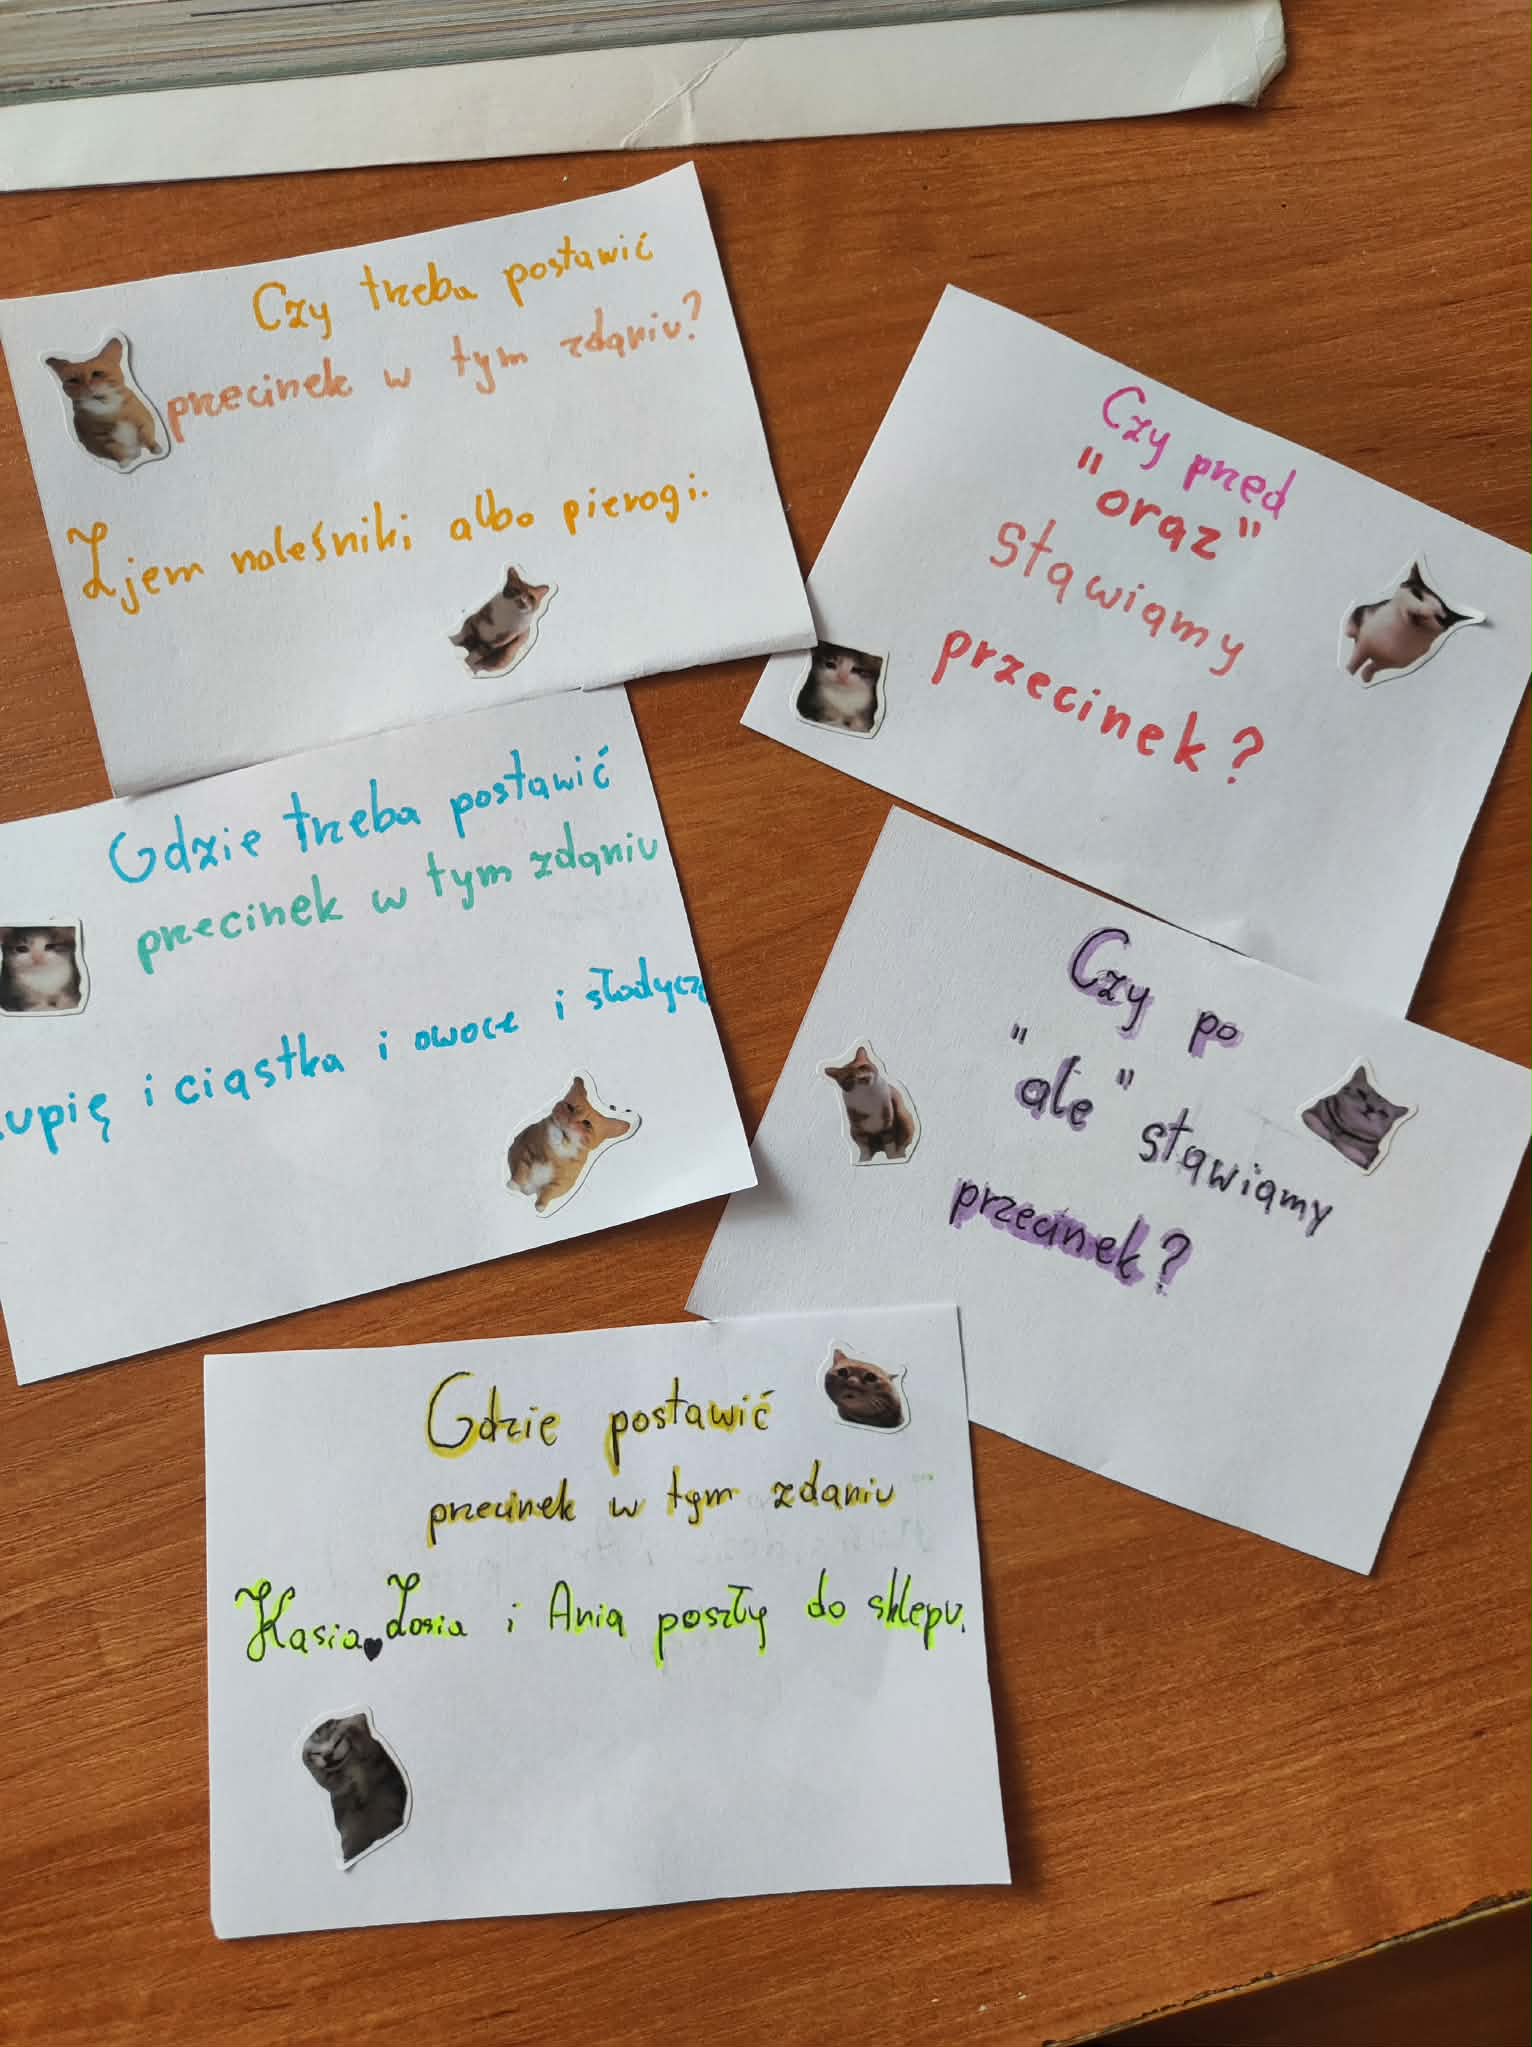 Czy trzeba postawić
przecinek w tym zdaniu?
Zjem naleśniki albo pierogi.
Czy przed
"oraz"
stawiamy
przecinek?
Gdzie trzeba postawić
przecinek w tym zdaniu
upię i ciastka i owoce i słodycz
Czy po
"ale" stawiamy
przecinek?
Gdzie postawić
przecinek w tym zdaniu
Kasia, Zosia i Ania poszły do sklepu.